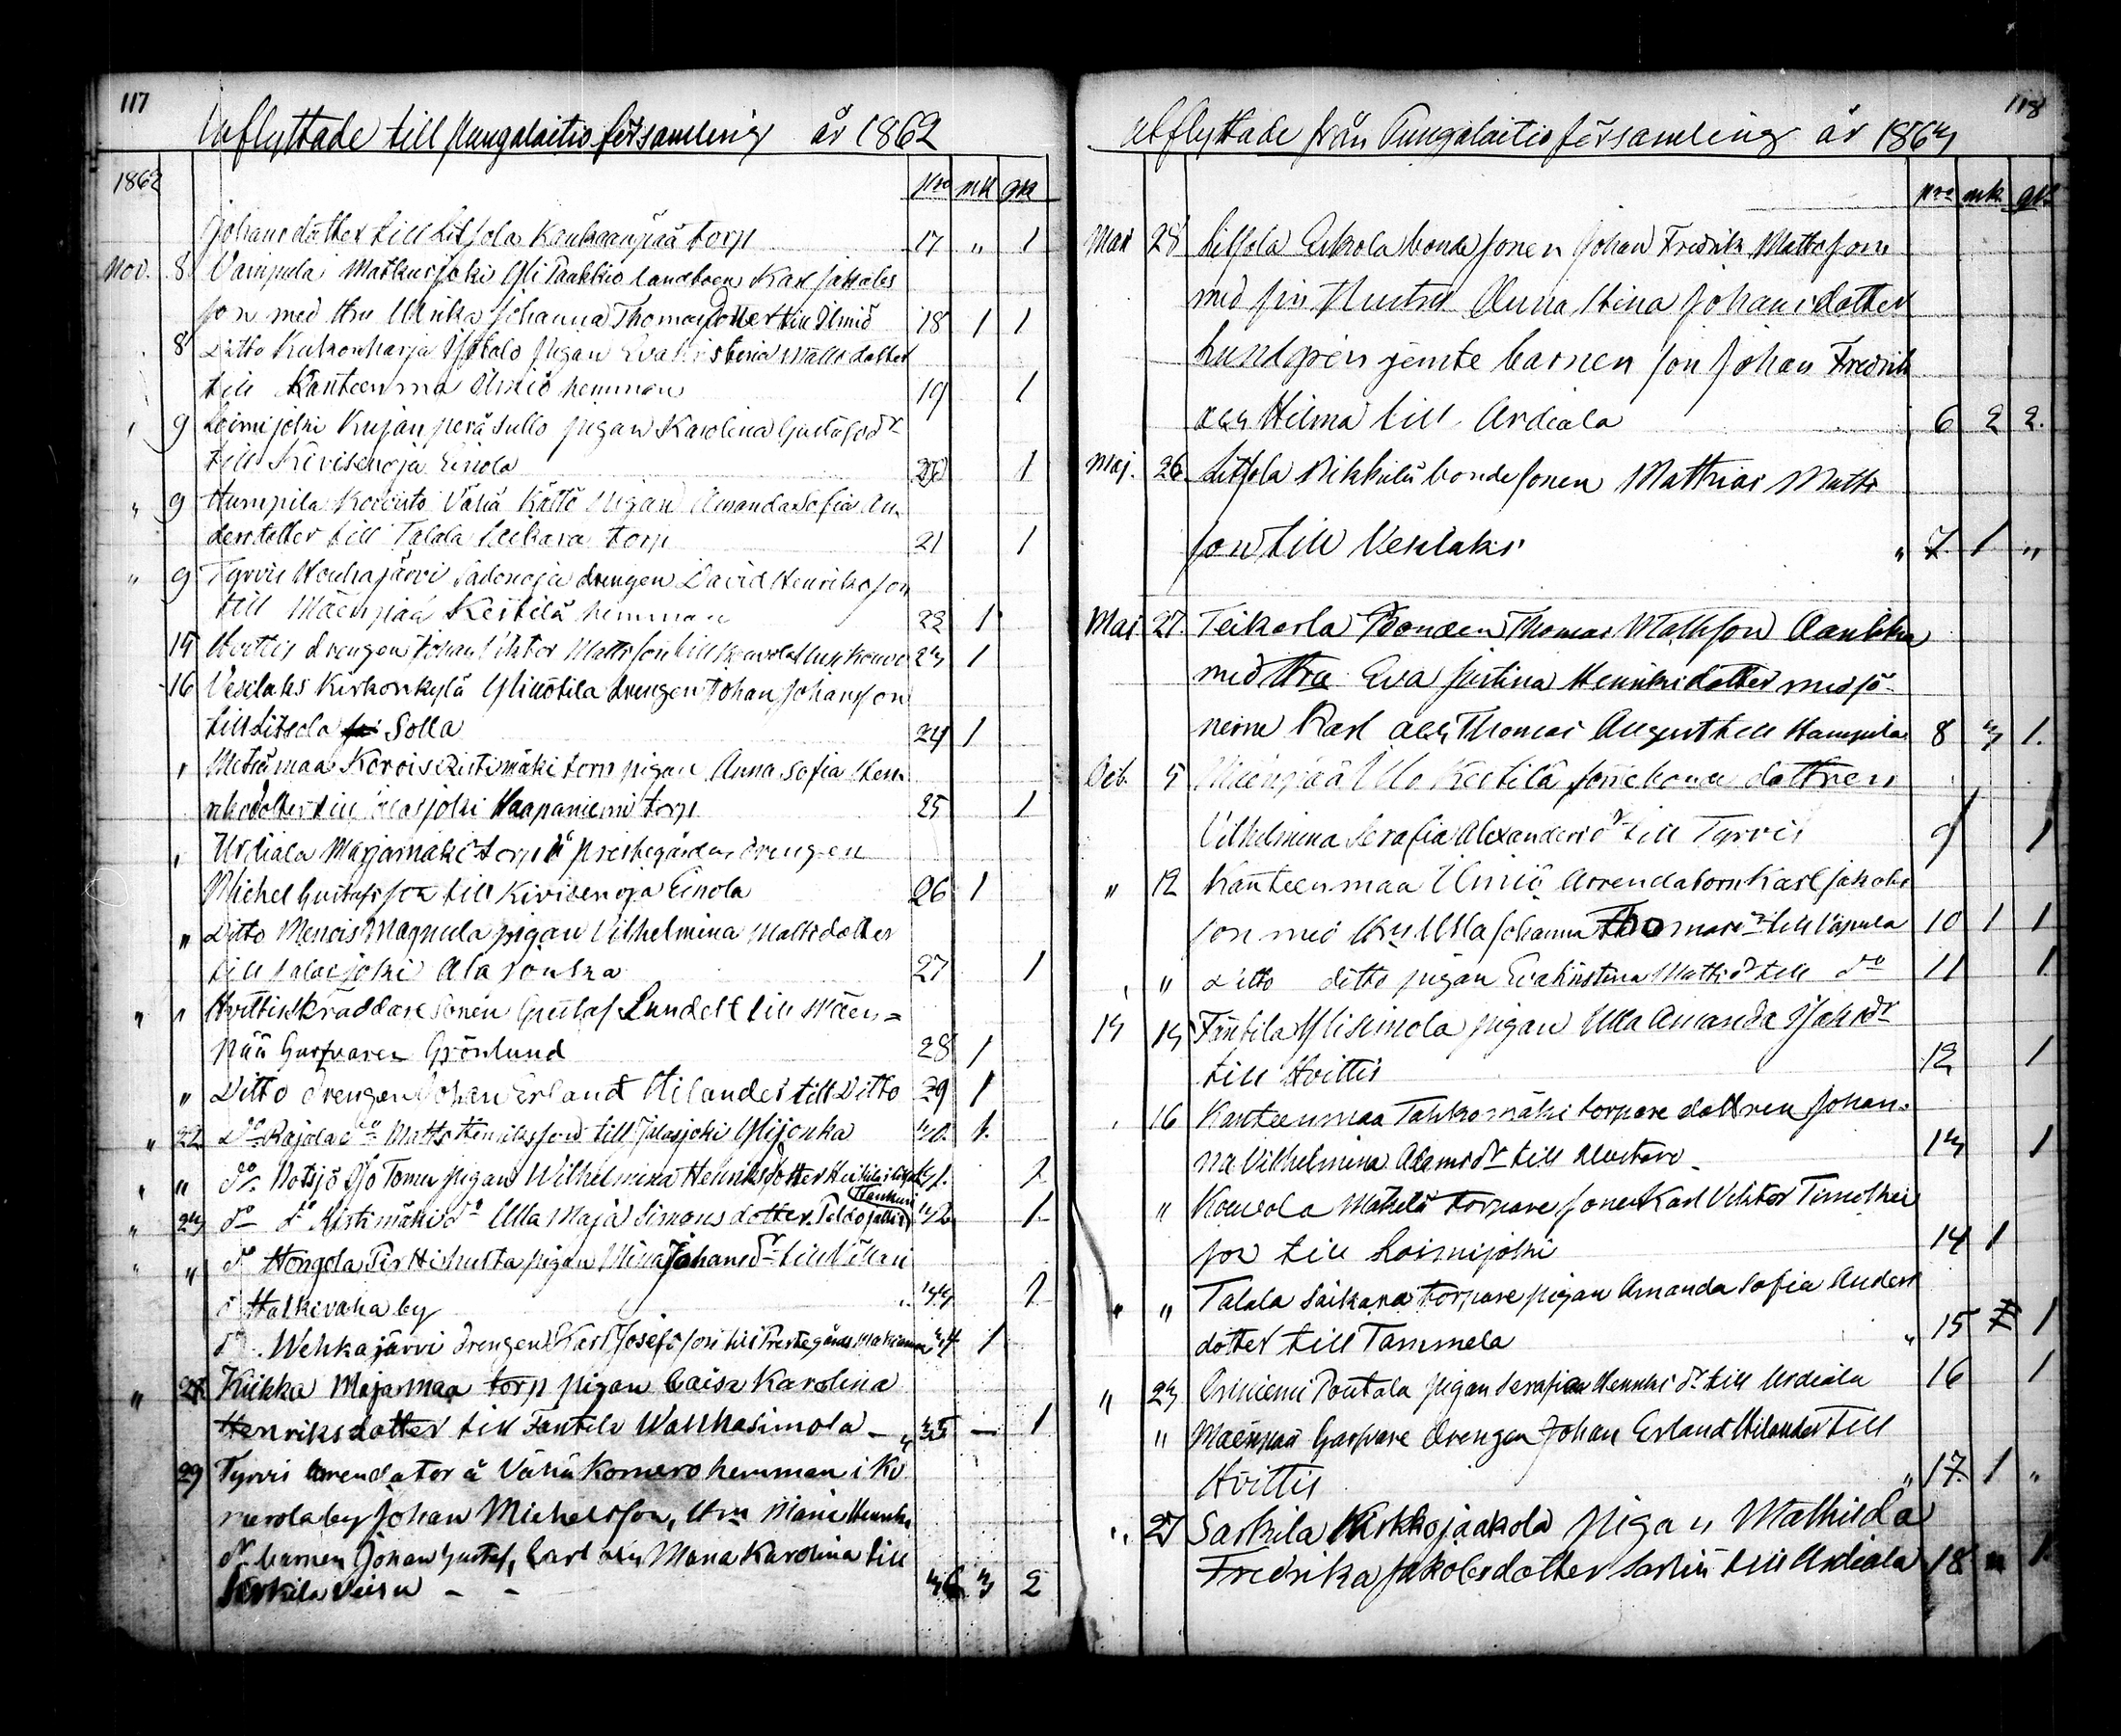 117
Inflyttade till Pungalaitio församling år 1862
1862 Nro mk qk
Johansdotter till Litsola Kaukaanpää torp 17 " 1
Nov. 8 Vampula Matkusjoki Yli Paakkio landboen Karl Jakobs
son med Hru Ulrika Johanna Thomasdotter till Ilmiö 18 1 1
8 Ditto Kukonharja pigan Eva Kristina Mattsdotter
till Kanteenmaa Ilmiö hemman 19 1
" 9 Loimijoki Kujanperä Sullo pigan Karolina Gustafsdr
till Kivisenoja Einola 20 1
" 9 Humpila Koivisto Vähä Kättö pigan Amanda Sofia An
dersdotter till Talala Seikara torp 21 1
" 9 Tyrvis Houhajärvi Sadonoja drengen David Henriksson
till Mäenpää Kestilä hemman 22 1
15 Hvittis drengen Johan Viktor Mattsson till Kouvola 23 1
16 Vesilaks Kirkonkylä Yliuotila drengen Johan Johansson
till Litsola Solla 24 1
" Metsämaa Korois Ristimäki torp pigan Anna Sofia Hen
riksdotter till Jalasjoki Haapaniemi torp 25 1
" Urdiala Marjamäki torp prestegården drengen
Michel Gustafsson till Kivisenoja Einola 26 1
" Ditto Menois Magnula pigan Vilhelmina Mattsdotter
till Jalasjoki Ala Jouka 27 1
" " Hvittis skräddare sonen Gustaf Lundell till Mäen=
pää Garfvaren Grönlund 28 1
" Ditto drengen Johan Erland Hilander till Ditto 29 1
" 22 Do Rajala do Matts Henriksson till Jalasjoki Ylijouka 30. 1.
" " do. pigan Wilhelmina Henriksdotter 31. 1
" 23 do do Ristimäki do Ulla Maja Simonsdotter 32 1
" " do Hongola Pirttikulta pigan Mina Johansdr till Villari
i Halkivaha by 33 1
do. Wehkajärvi drengen Karl Josefsson till Prestegården 34 1
" 28 Kiikka Majamaa torp pigan Caisa Karolina
Henriksdotter till Fantila Wahhasimola — " 35 — 1
29 Tyrvis Arendator å Vähä Komero hemman i Ko
merola by Johan Michelsson, Hru Maria Henriks
dr barnen Johan Gustaf, Carl och Maria Karolina till
Sarkila Veisu - - 36 3 2
118
Utflyttade från Pungalaitio församling år 1863
Nro mk. qk.
Mar 28 Litsola Eskola bonde sonen Johan Fredrik Mattsson
med sin Hustru Anna Stina Johansdotter
Lundgren jemte barnen son Johan Fredrik
och Hilma till Urdiala 6 2 2.
Maj. 26 Litsola Pikkulä bonde sonen Matthias Matts
son till Vesilaks " 7 1 "
Maj 27. Teikarla Bonden Thomas Mattsson Aanikka
med Hru Eva Justina Henriksdotter med sö
nerne Karl och Thomas August till Hampula 8 3 1.
Oct. 5 Mäenpää Ulo Kestilä bonde dottren
Vilhelmina Serafia Alexandersdr till Tyrvis 9 1
" 12 Kanteenmaa Ilmiö Arrendatorn Karl Jakobs
son med Hru Ulla Johanna Thomasdr till Vapula 10 1 1
" " Ditto ditto pigan Eva Kristina Mattsdr till do 11 1
13 13 Fantila Ylisimola pigan Ulla Amanda Isaksdr
till Hvittis 12 1
" 16 Kanteenmaa Tahkomäki torpare dottren Johan=
na Vilhelmina Adamsdr till Alastaro 13 1
" Kouvola Mäkelä torpare sonen Karl Viktor Timothei
son till Loimijoki 14 1
" " Talala Saikara torpare pigan Amanda Sofia Anders
dotter till Tammela " 15 1
" 23 Oriniemi Poutala pigan Serafia Henriksdr till Urdiala 16 1
" Mäenpää Garfvare drengen Johan Erland Hilander till
Hvittis " 17. 1 "
" 27 Sarkila Kirkkojaakola Pigan Mathilda
Fredrika Jakobsdotter Sarlin till Urdiala 18 " 1.